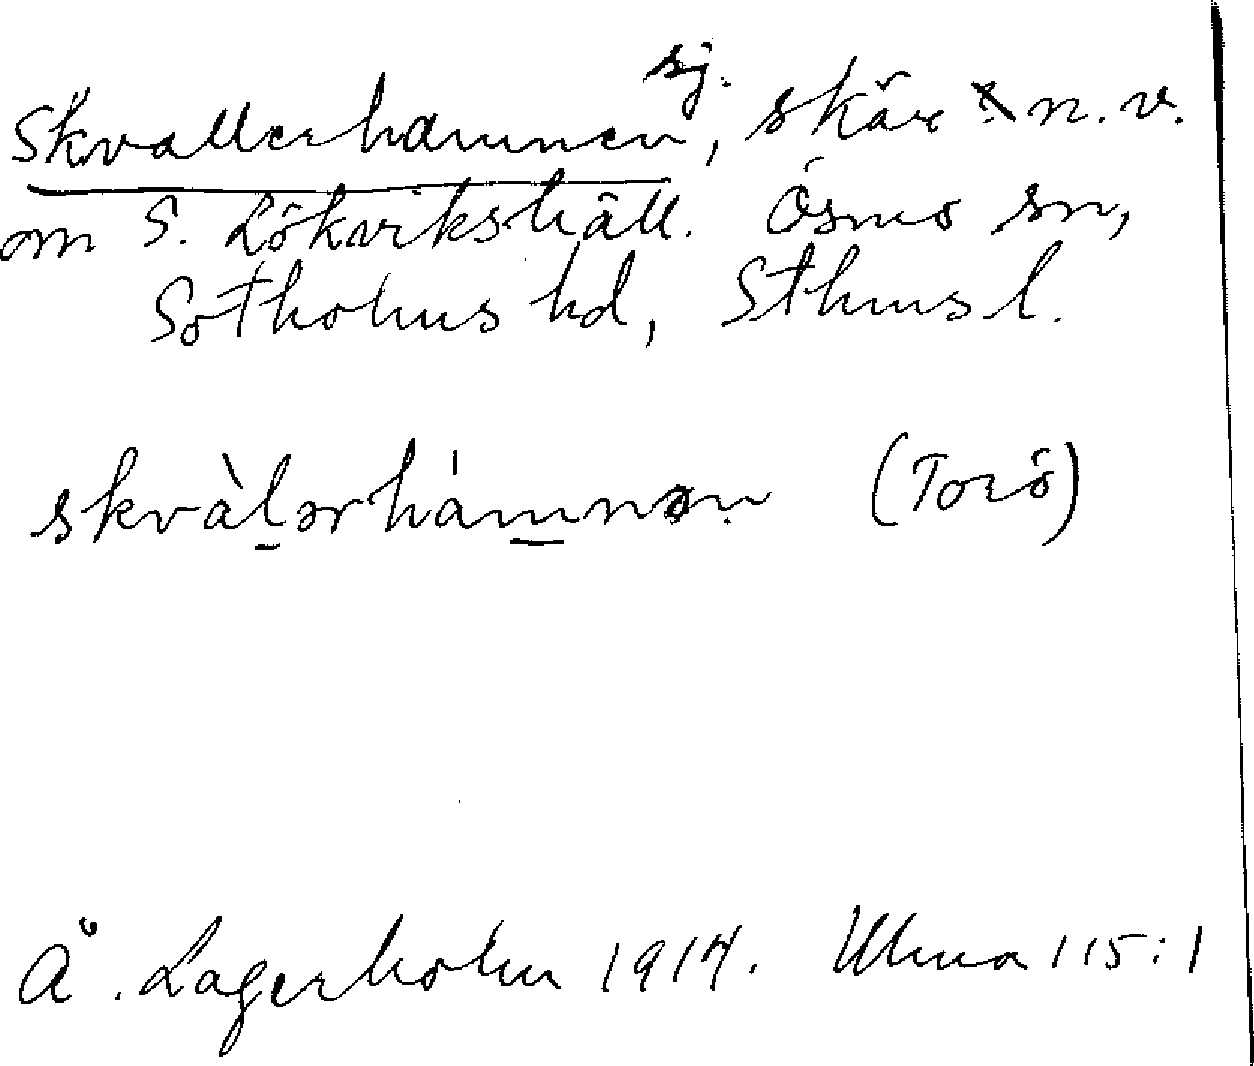 sj.
Skvallerhamnen, skär n.v.
om S. Lökvikshäll. Ösmo sn,
Sotholms hd, Sthms l.
skvàlərhámnən (Torö)
Å. Lagerholm 1914. Ulma 115:1